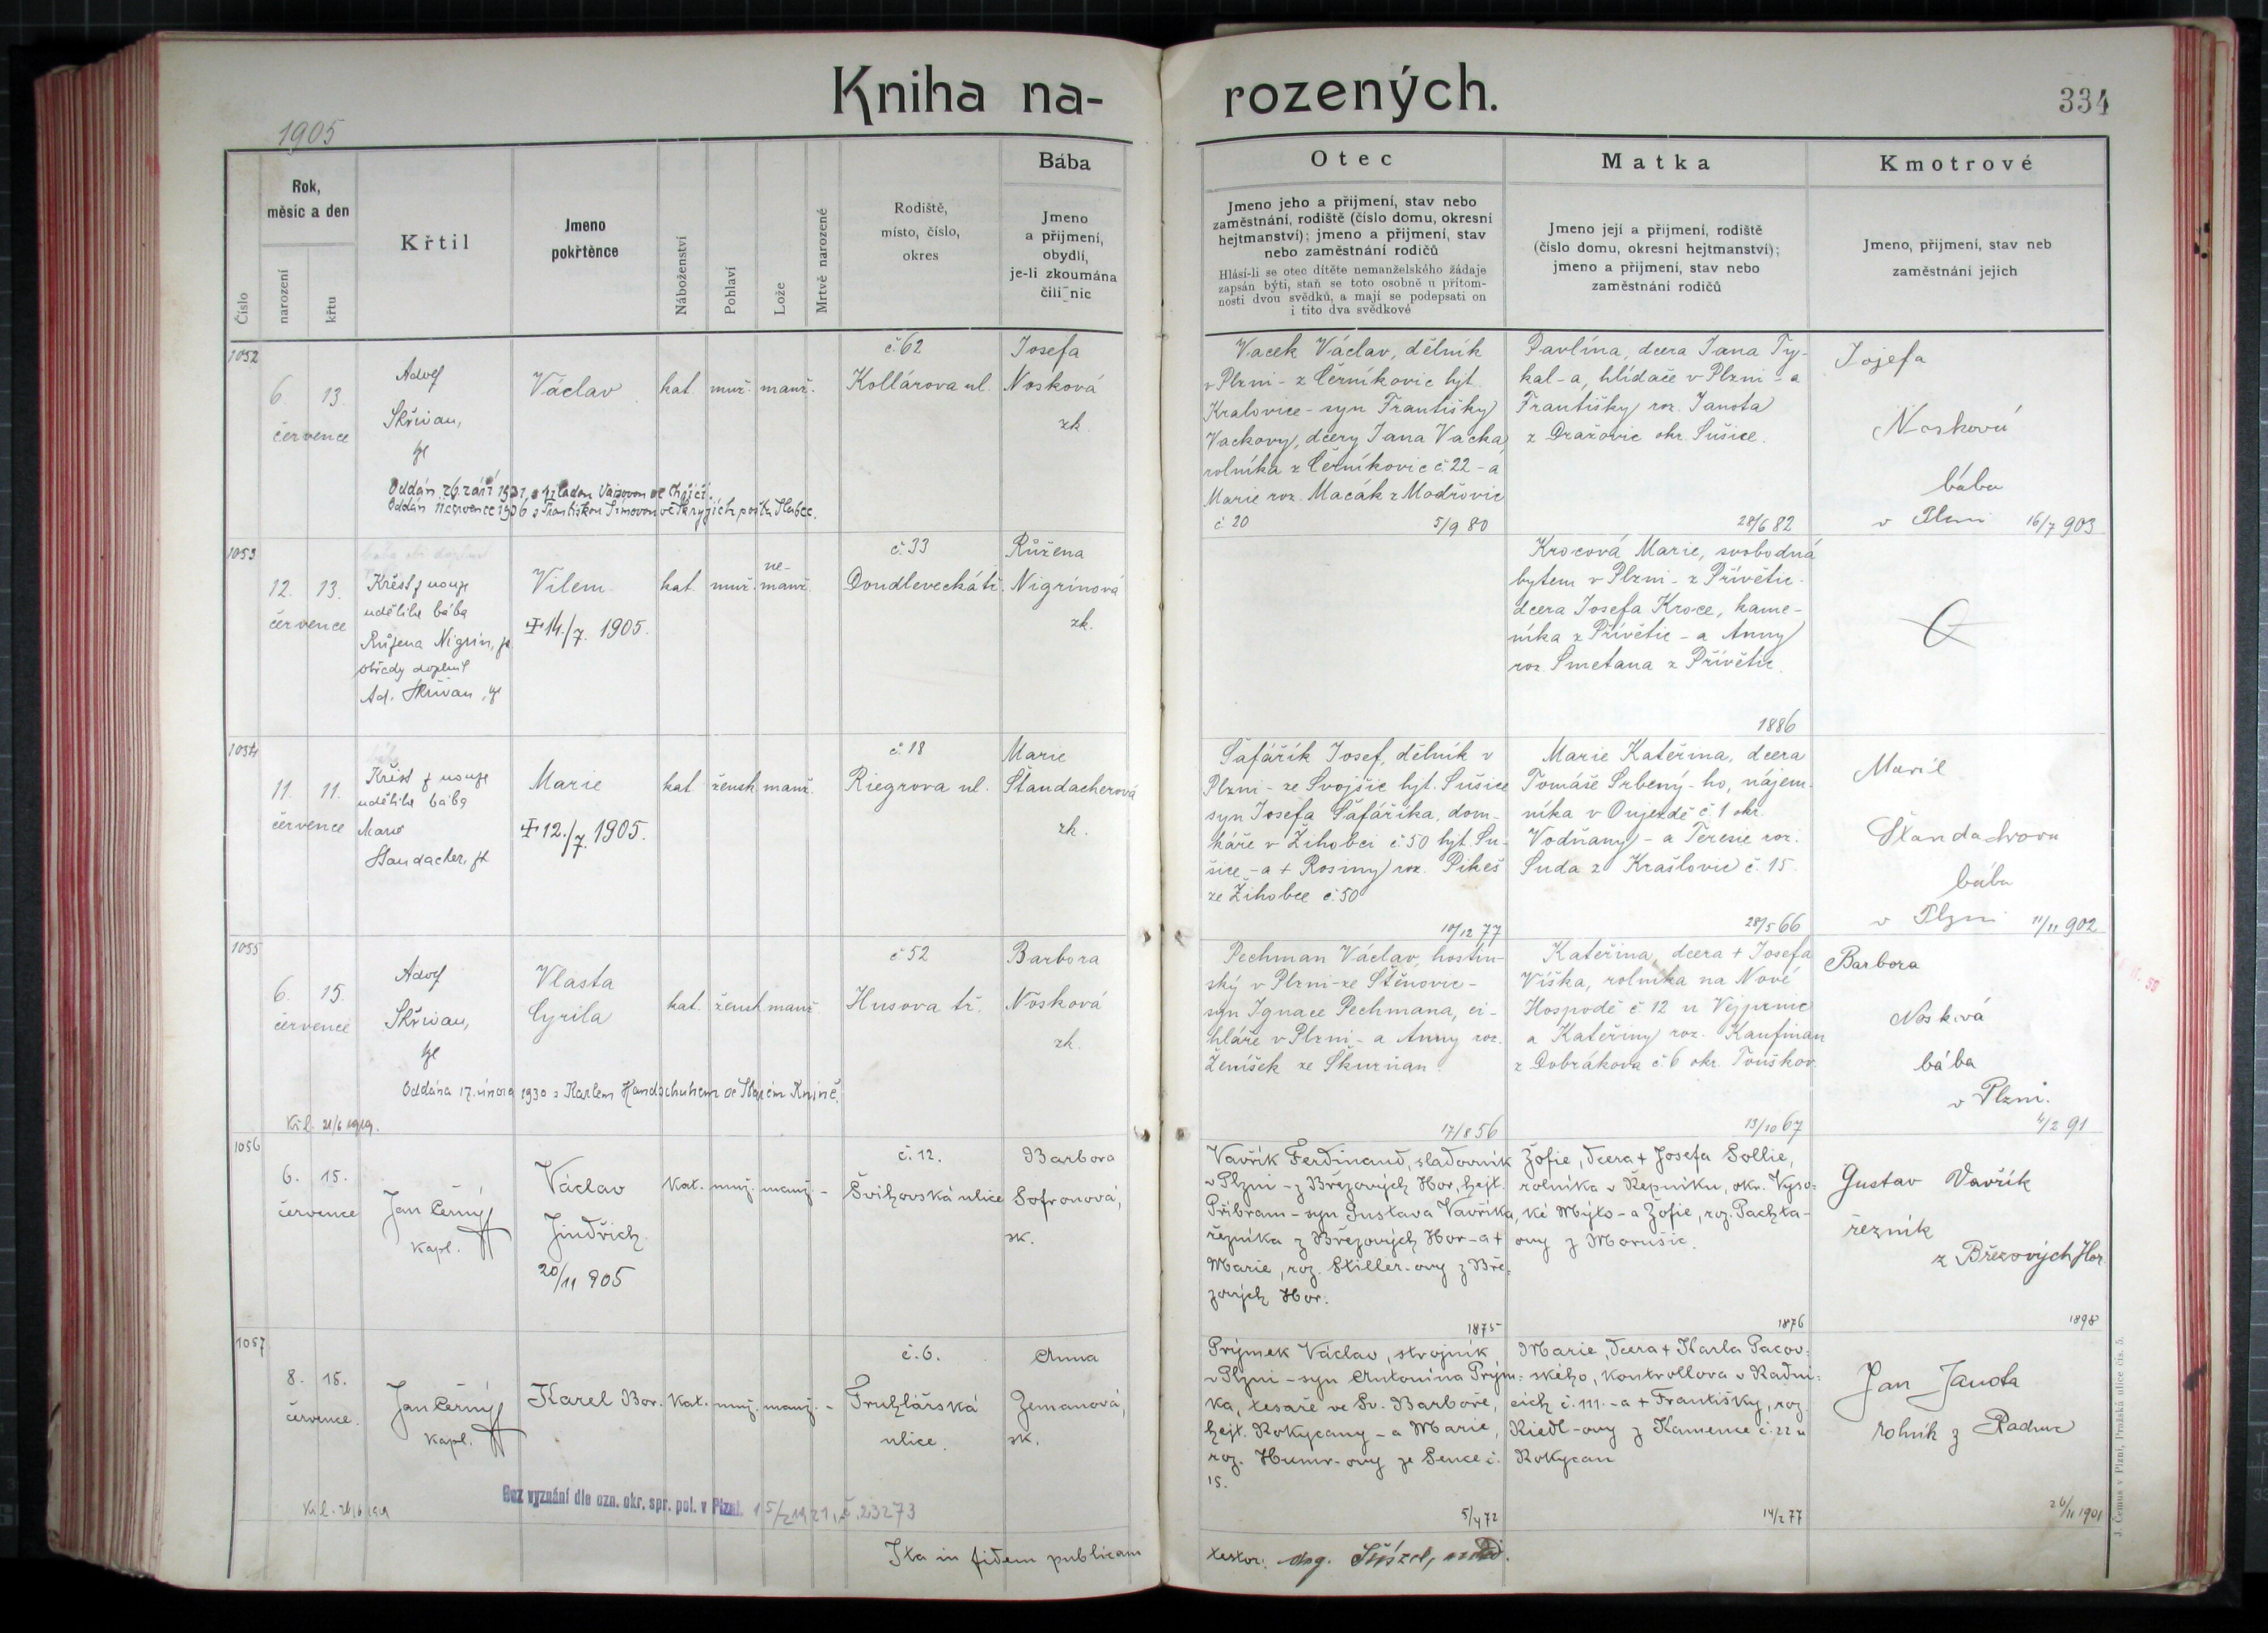 Kniha na-
rozených.
334
1905
Číslo
Rok,
měsíc a den
narození
křtu
Křtil
Jmeno
pokřtěnce
Náboženství
Pohlaví
Lože
Mrtvě narozené
Rodiště,
místo, číslo,
okres
Bába
Jmeno
a přijmení,
obydlí,
je-li zkoumána
čili nic
Otec
Jmeno jeho a přijmení, stav nebo
zaměstnání, rodiště (číslo domu, okresní
hejtmanství); jmeno a přijmení, stav
nebo zaměstnání rodičů
Hlásí-li se otec dítěte nemanželského žádaje
zapsán býti, staň se toto osobně u přítom-
nosti dvou svědků, a mají se podepsati on
i tito dva svědkové
Matka
Jmeno její a přijmení, rodiště
(číslo domu, okresní hejtmanství);
jmeno a přijmení, stav nebo
zaměstnání rodičů
Kmotrové
Jmeno, přijmení, stav neb
zaměstnání jejich
1052
6. 13.
července
Adolf
Skřivan,
Václav
kat. muž. manž.
č. 62
Kollárova ul.
Josefa
Nosková
zk.
Oddán 26. září 1931
Oddán července 1936 s Františkou Šímovou ve Skryjích pošta Slabce.
Vacek Václav, dělník
v Plzni - z Černíkovic hjt.
Kralovice - syn Františky
Vackovy, dcery Jana Vacka,
rolníka z Černíkovic č. 22 - a
Marie roz. Macák z Modřovic
č. 20
5/9 80
Pavlína, dcera Jana Ty-
kal-a, hlídače v Plzni - a
Františky roz. Janota
z Dražovic okr. Sušice.
28/6 82
Josefa
Nosková
bába
v Plzni 16/7 903
1053
12. 13.
července
Křest z nouze
udělila bába
Růžena Nigrin, zk
obřady doplnil
Ad. Skřivan,
Vilem
14./7. 1905.
kat. muž. ne-
manž.
č. 33
Doudlevecká tř.
Růžena
Nigrinová
zk.
Krocová Marie, svobodná
bytem v Plzni - z Přívětic -
dcera Josefa Kroce, kame-
níka z Přívětic - a Anny
roz. Smetana z Přívětic.
1886
1054
11. 11.
července
Křest z nouze
udělila bába
Marie
Štandacher, zk
Marie
12./7. 1905.
kat. žensk. manž.
č. 18
Riegrova ul.
Marie
Štandacherová
zk.
Šafářík Josef, dělník v
Plzni - ze Svojšic hjt. Sušice
syn Josefa Šafáříka, dom-
káře v Žihobci č. 50 hjt. Su-
šice - a + Rosiny roz. Pikeš
ze Žihobce č. 50
10/12 77
Marie Kateřina, dcera
Tomáše Srbený-ho, nájem-
níka v Oujezdě č. 1 okr.
Vodňany - a Teresie roz.
Suda z Krašlovic č. 15.
28/5 66
Marie
Štandachrova
bába
v Plzni 11/11 902
1055
6. 15.
července
Adolf
Skřivan,
Vlasta
Cyrila
kat. žensk. manž.
č. 52
Husova tř.
Barbora
Nosková
zk.
Oddána 17. února 1930 s Karlem Handschuhem ve Starém Kníně.
21/6 1919.
Pechman Václav, hostin-
ský v Plzni - ze Stěnovic -
syn Ignace Pechmana, ci-
hláře v Plzni - a Anny roz.
Ženíšek ze Skurňan.
17/8 56
Kateřina, dcera + Josefa
Víška, rolníka na Nové
Hospodě č. 12 u Vejprnic
a Kateřiny roz. Kaufman
z Dobrákova č. 6 okr. Touškov.
13/10 67
Barbora
Nosková
bába
v Plzni.
4/2 91
1056
6. 15.
července
Jan Černý
kapl.
Václav
Jindřich.
20/11 905
Kat. muž. manž. -
č. 12.
Švihovská ulice
Barbora
Sofronová,
zk.
Vavřík Ferdinand, sladovník
v Plzni - z Březových Hor, hejt.
Příbram - syn Gustava Vavříka,
řezníka z Březových Hor - a +
Marie, roz. Stiller-ovy z Bře-
zových Hor.
1875
Žofie, dcera + Josefa Sollie,
rolníka v Řepníku, okr. Vyso-
ké Mýto - a Žofie, roz. Pachta-
ovy z Morušic.
1876
Gustav Vavřík
řezník
z Březových Hor
1898
1057
8. 15.
července.
Jan Černý
kapl.
Karel Bor.
Kat. muž. manž. -
č. 6.
Truhlářská
ulice.
Anna
Zemanová,
zk.
Bez vyznání dle ozn. okr. spr. pol. v Plzni. 15/2 1921, č. 23273
Prýmek Václav, strojník
v Plzni - syn Antonína Prým-
ka, tesaře ve Sv. Barboře,
hejt. Rokycany - a Marie,
roz. Humr-ovy ze Sence č.
15.
5/4 72
Marie, dcera + Karla Pacov-
ského, kontrollora v Radni-
cích č. 111. - a + Františky, roz.
Riedl-ovy z Kamence č. 22 u
Rokycan
14/2 77
Jan Janota
rolník z Radnic
26/11 1901
Ita in fidem publicam
testor:
J. Čermus v Plzni, Pražská ulice čís. 5.